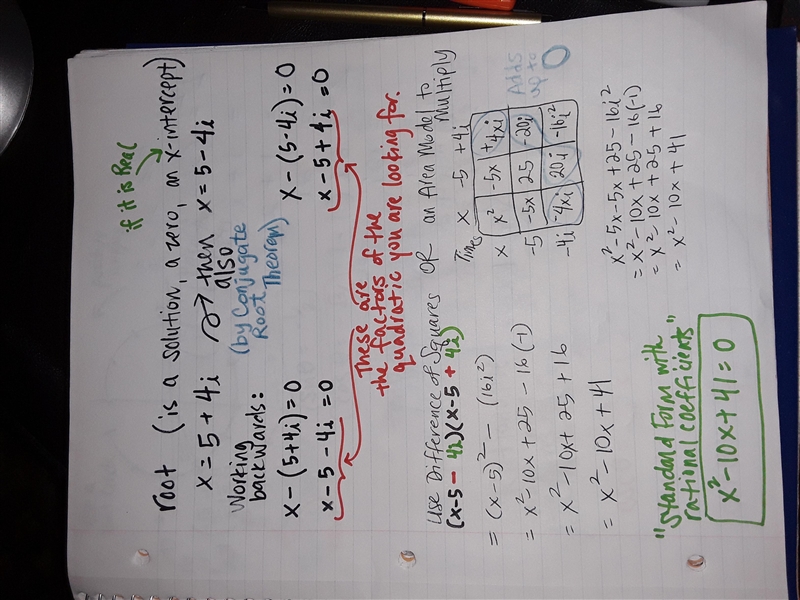 if it is Real
root (is a solution, a zero, an x-intercept)
x = 5 + 4i then also x = 5 - 4i
(by Conjugate Root Theorem)
Working backwards:
x - (5+4i) = 0
x - 5 - 4i = 0
x - (5-4i) = 0
x - 5 + 4i = 0
These are
the factors of the
quadratic you are looking for.
Use Difference of Squares OR an Area Model to Multiply
(x-5 - 4i)(x-5 + 4i)
= (x-5)² - (16i²)
= x² - 10x + 25 - 16(-1)
= x² - 10x + 25 + 16
= x² - 10x + 41
Times x -5 +4i
x x² -5x +4xi
-5 -5x 25 -20i
-4i -4xi 20i -16i²
Adds
up to
0
x² - 5x - 5x + 25 - 16i²
= x² - 10x + 25 - 16(-1)
= x² - 10x + 25 + 16
= x² - 10x + 41
"Standard Form with
rational coefficients"
x² - 10x + 41 = 0